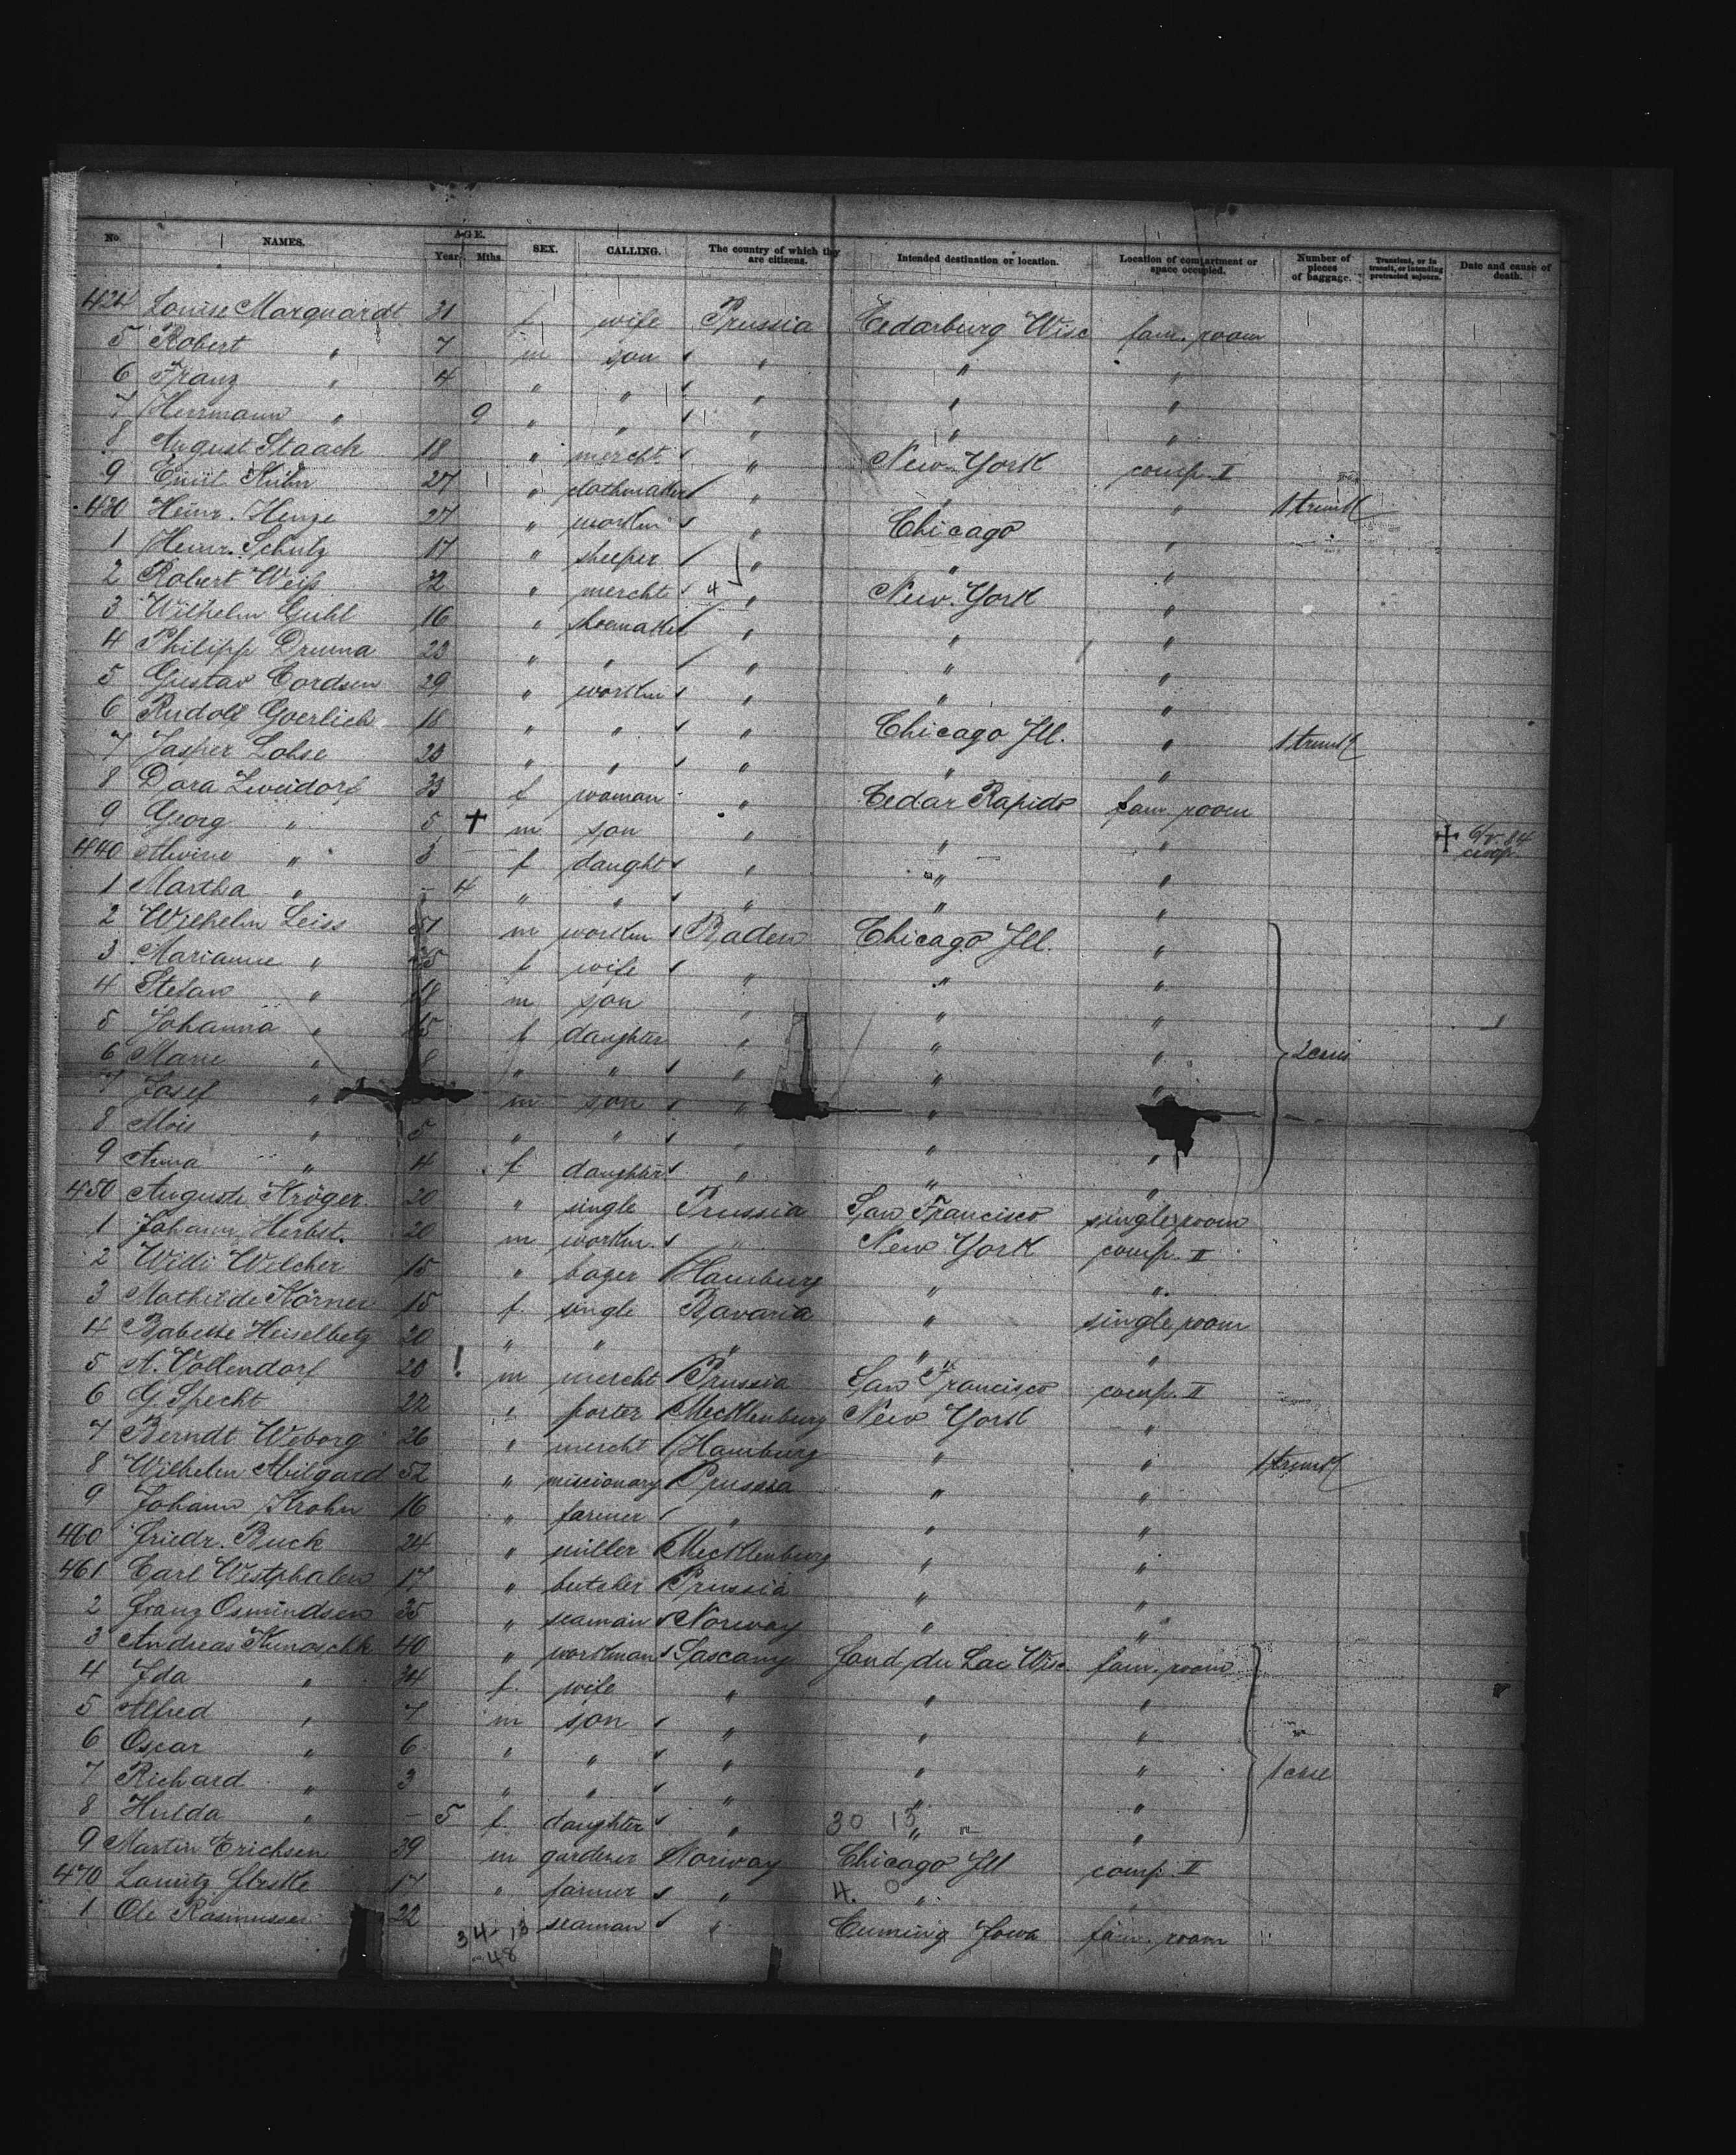 No. NAMES. AGE. Years Mths. SEX. CALLING. The country of which they are citizens. Intended destination or location. Location of compartment or space occupied. Number of pieces of baggage. Transient, or in transit, or intending protracted sojourn. Date and cause of death.
424 Louise Marquardt 31 f wife Prussia Cedarburg Wisc fam. room
5 Robert " 7 m son " " "
6 Franz " 4 " " " " "
7 Herrmann " 9 " " " " "
8 August Staack 18 " mercht " New York comp. II
9 Emil Kühn 27 " clothmaker " " " 1 trunk
430 Heinr. Henze 27 " workm " Chicago "
1 Heinr. Schulz 17 " sheeper " " "
2 Robert Weiß 32 " mercht 4 " New York "
3 Wilhelm Guhl 16 " shoemaker " " "
4 Philipp Druma 23 " " " " "
5 Gustav Cordsen 29 " workm " " "
6 Rudolf Goerlich 18 " " " Chicago Ill. " 1 trunk
7 Jasper Lohse 23 " " " " "
8 Dora Zweidorf 33 f woman " Cedar Rapids fam. room
9 Georg " 5 + m son " " " + 6/5. 84
440 Alwine " 3 f daught " " "
1 Martha " - 4 " " " " "
2 Wilhelm Leiss 51 m workm Baden Chicago Ill. "
3 Marianne " f wife " " "
4 Stefan " 18 m son " " "
5 Johanna " 15 f daughter " " "
6 Marie " " " " " " 2 cases
7 Josef " m son " "
8 Alois " 5 " " " " "
9 Anna " 4 f daughter " " "
450 Auguste Kröger 20 " single Prussia San Francisco single room
1 Johann Herbst. 20 m workm. " New York comp. II
2 Willi Welcher 15 " Hamburg " "
3 Mathilde Körner 15 f. single Bavaria " single room
4 Babette Heiselbetz 20 " " " " "
5 A. Vollendorf 20 ! m mercht Prussia San Francisco comp. II
6 G. Specht 22 " porter Mecklenburg New York "
7 Berndt Weborg 26 " mercht Hamburg " " 1 trunk
8 Wilhelm Abilgard 52 " missionary Prussia " "
9 Johann Krohn 16 " farmer " " "
460 Friedr. Buck 24 " miller Mecklenburg " "
461 Carl Westphalen 17 " butcher Prussia " "
2 Franz Osmundsen 35 " seaman Norway " "
3 Andreas 40 " workman Fond du Lac Wisc. fam. room
4 Ida " 34 f. wife " " "
5 Alfred " 7 m son " " "
6 Oscar " 6 " " " " "
7 Richard " 3 " " " " " 1 case
8 Hulda " - 5 f. daughter " 30 13 " "
9 Martin Erichsen 39 m gardener Norway Chicago Ill comp. II
470 17 " farmer " 4. 0 " "
1 Ole Rasmussen 22 seaman " Cuming Iowa fam. room
34- 13
-48